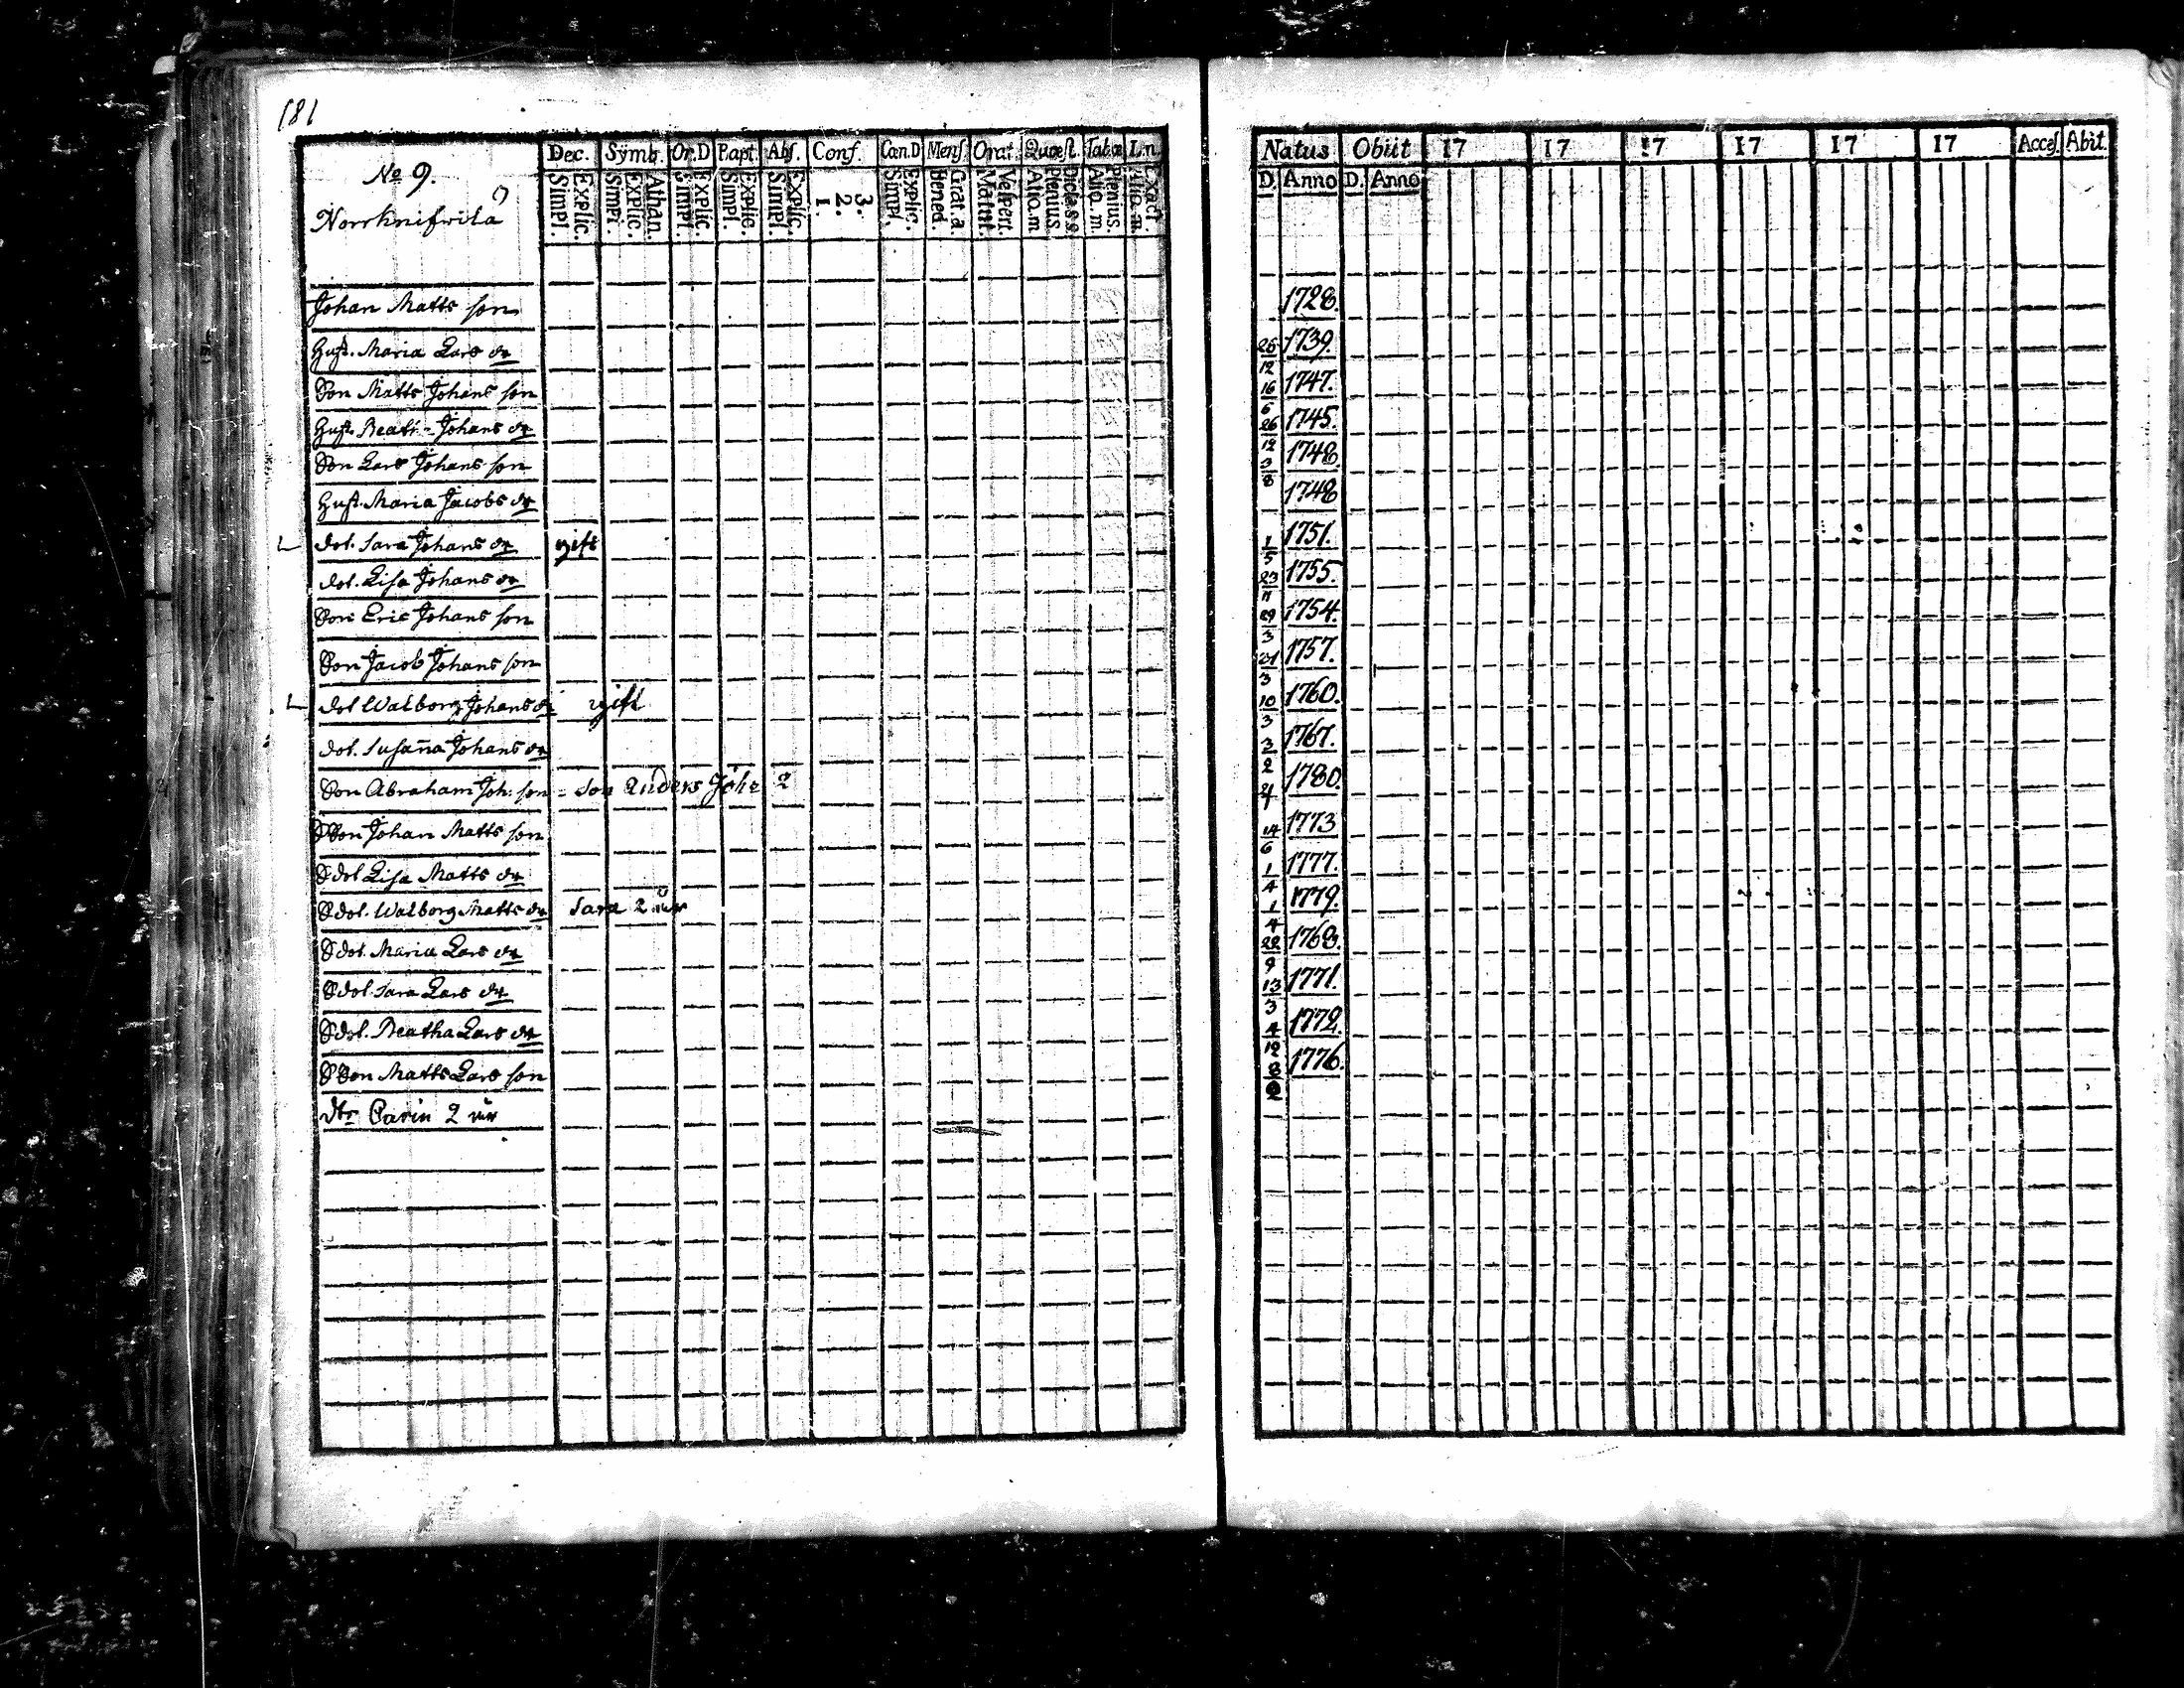 181
No 9.
Norrknifvila
Dec. Symb. Or.D Bapt. Abs. Conf. Cœn.D Mens Orat. Quæst. Tab.œ L.n.
Simpl. Explic. Simpl. Explic. Athan. Simpl. Explic. Simpl. Explic. Simpl. Explic. 1. 2. 3. Simpl. Explic. Bened. Grat. a. Matut. Vespert. Alio. m Plenius. Dict. a s s. Alio. m. Plenius. Alio. m. Exact.
Natus Obiit 17 17 17 17 17 17 Acces. Abit.
D. Anno D. Anno
Johan Matts son 1728.
Hust. Maria Lars dr 26/12 1739.
Son Matts Johans son 16/6 1747.
Hust. Beata Johans dr 26/12 1745.
Son Lars Johans son 3/8 1748.
Hust. Maria Jacobs dr 1748
dot. Sara Johans dr gift 1/5 1751.
dot. Lisa Johans dr 23/11 1755.
Son Eric Johans son 29/3 1754.
Son Jacob Johans son 21/3 1757.
dot Walborg Johans dr gift 10/3 1760.
dot. Susaña Johans dr 3/2 1767.
Son Abraham Joh. son - Son Anders Joh: 2 1780.
SSon Johan Matts son 14/6 1773
Sdot Lisa Matts dr 1/4 1777.
Sdot. Walborg Matts dr Sara 2 år 1/4 1779.
Sdot. Maria Lars dr 22/9 1768.
Sdot Sara Lars dr 13/3 1771.
Sdot. Beatha Lars dr 4/12 1772.
SSon Matts Lars son 1776.
dtr Carin 2 år